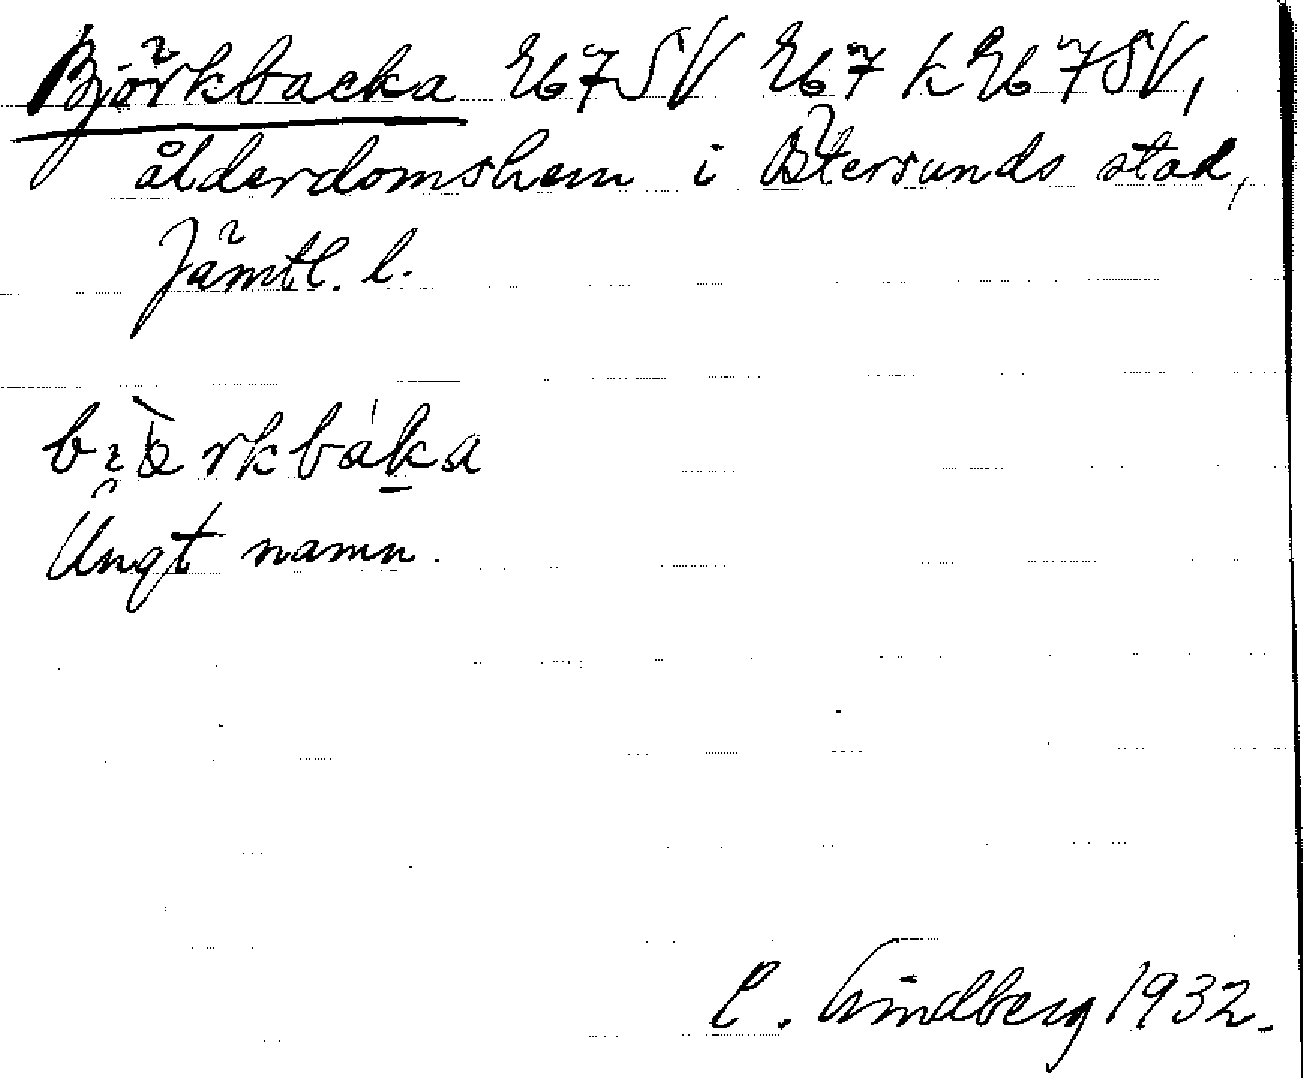 Björkbacka 2b7SV 2b7 k 2b7SV,
ålderdomshem i Östersunds stad,
Jämtl. l.
Ungt namn.
C. Lindberg 1932.